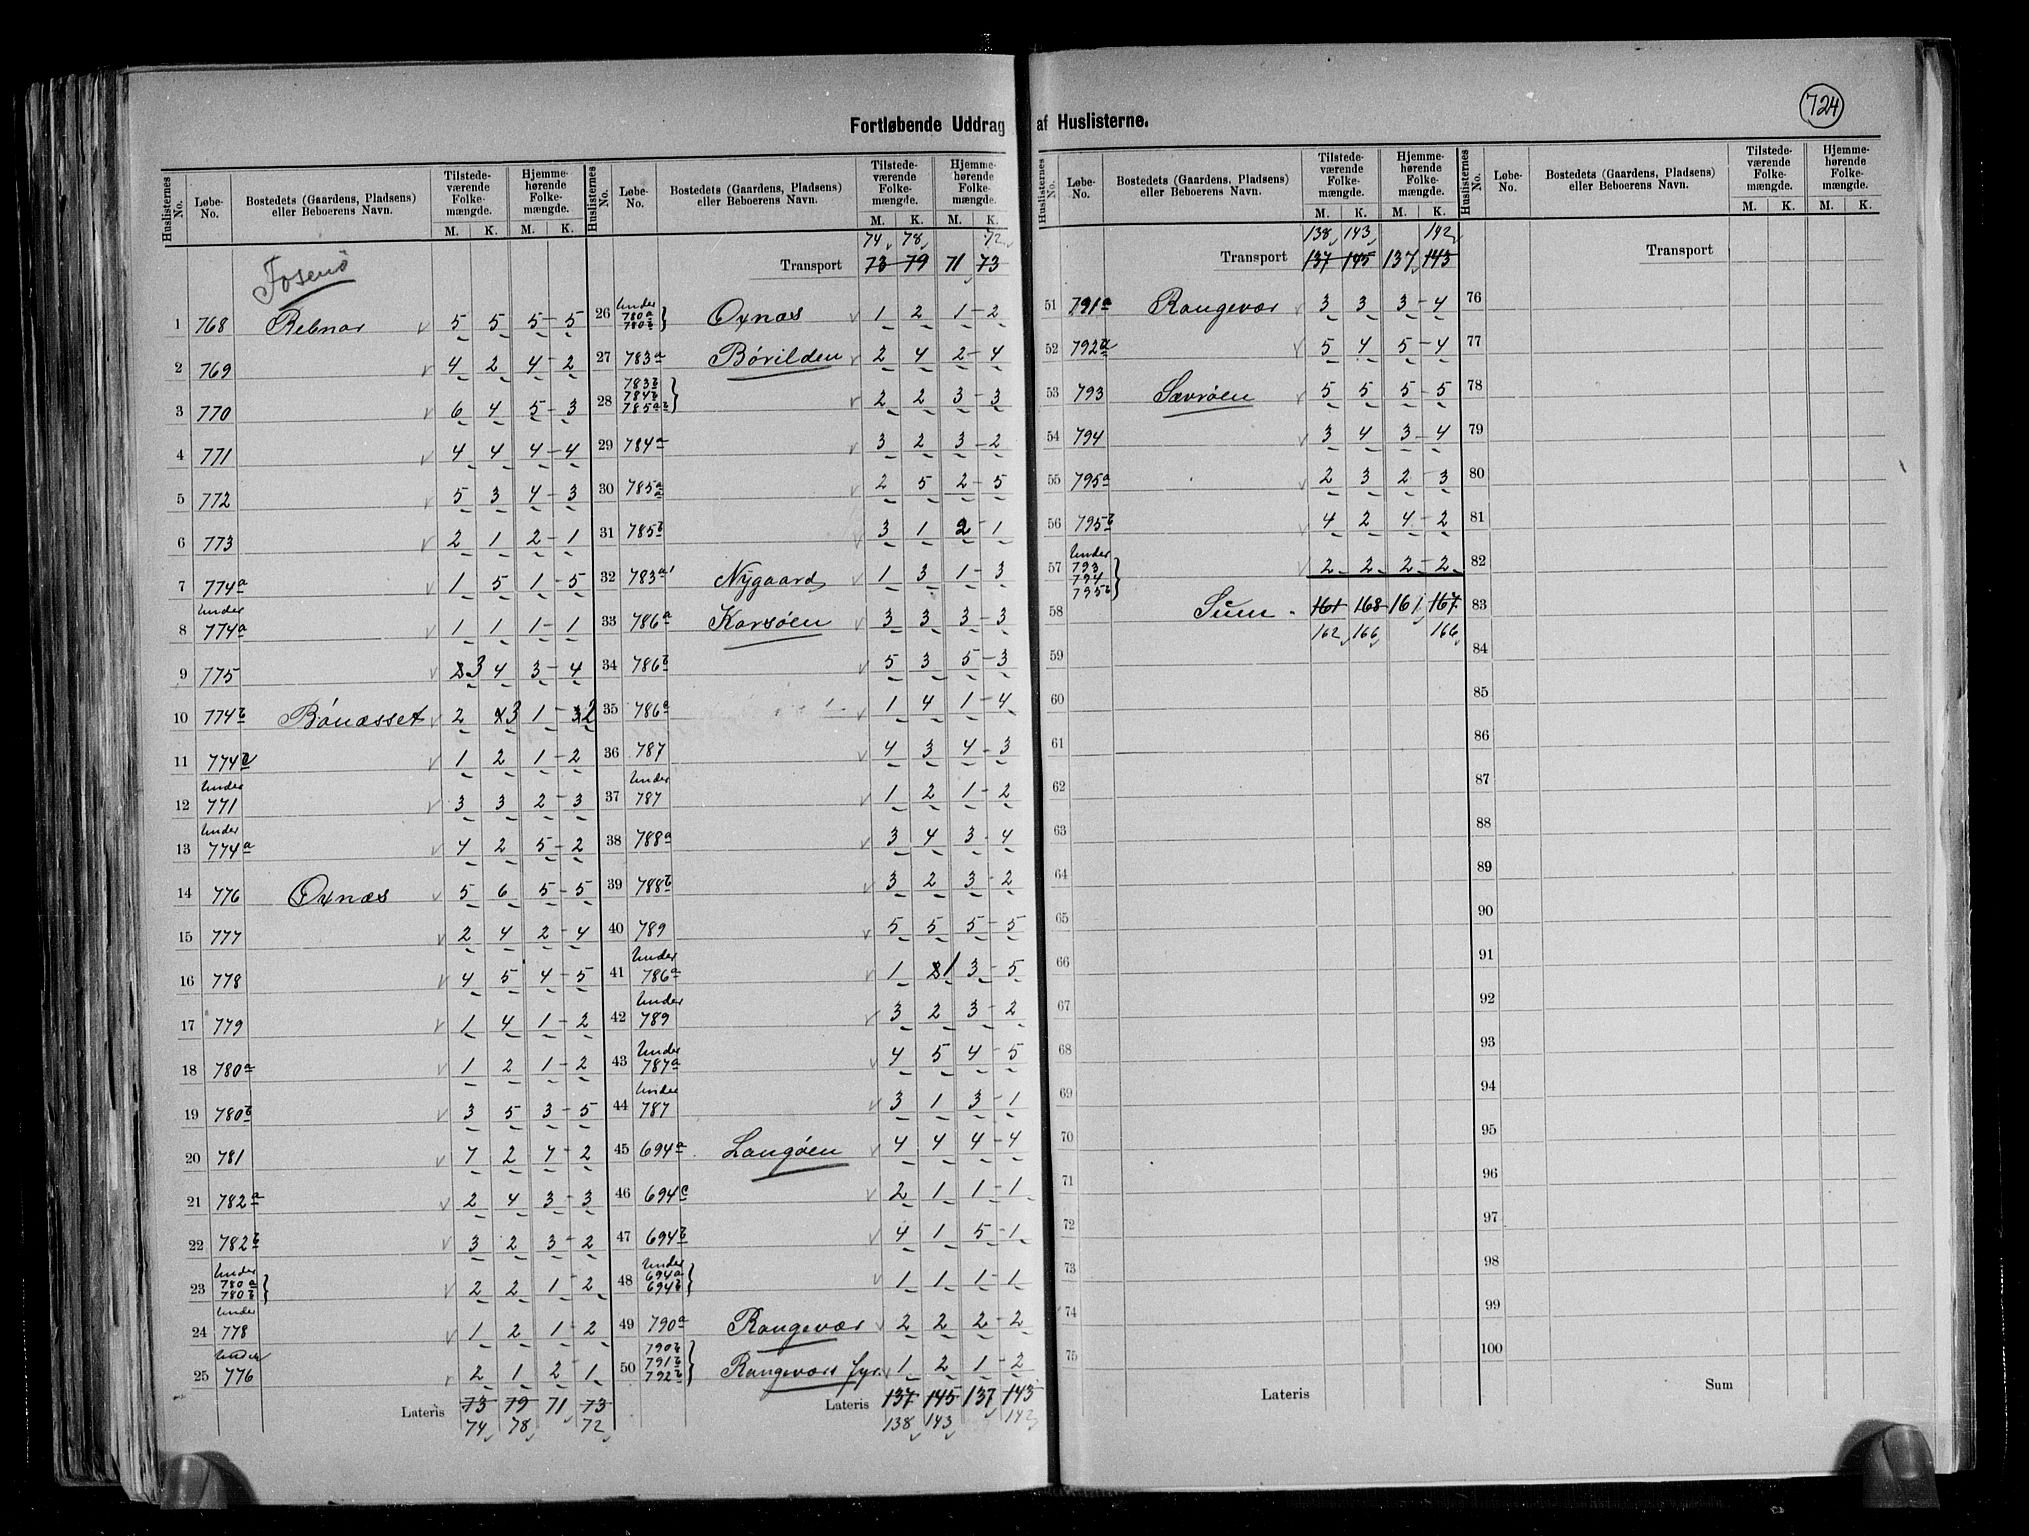 724
Fortløbende Uddrag af Huslisterne.
Huslisternes No. Løbe-No. Bostedets (Gaardens, Pladsens) eller Beboerens Navn. Tilstedeværende Folkemængde. M. K. Hjemmehørende Folkemængde. M. K.
Fosenö
1 768 Rebnor 5 5 5 - 5
2 769 4 2 4 - 2
3 770 6 4 5 - 3
4 771 4 4 4 - 4
5 772 5 3 4 - 3
6 773 2 1 2 - 1
7 774a 1 5 1 - 5
8 Under 774a 1 1 1 - 1
9 775 3 4 3 - 4
10 774b Bönæsset 2 3 1 - 2
11 774b 1 2 1 - 2
12 Under 771 3 3 2 - 3
13 Under 774a 4 2 5 - 2
14 776 Oxnæs 5 6 5 - 5
15 777 2 4 2 - 4
16 778 4 5 4 - 5
17 779 1 4 1 - 2
18 780a 1 2 1 - 2
19 780b 3 5 3 - 5
20 781 7 2 7 - 2
21 782a 2 4 3 - 3
22 782b 3 2 3 - 2
23 Under 780a 780b } 2 2 1 - 2
24 Under 778 1 2 1 - 2
25 Under 776 2 1 2 - 1
Lateris 73 79 71 73
74 78 72
Huslisternes No. Løbe-No. Bostedets (Gaardens, Pladsens) eller Beboerens Navn. Tilstedeværende Folkemængde. M. K. Hjemmehørende Folkemængde. M. K.
74 78 72
Transport 73 79 71 73
26 Under 780a 780b } Oxnæs 1 2 1 - 2
27 783a Börilden 2 4 2 - 4
28 783b 784b 785ab } 2 2 3 - 3
29 784a 3 2 3 - 2
30 785a 2 5 2 - 5
31 785b 3 1 2 - 1
32 783a Nygaard 1 3 1 - 3
33 786a Korsöen 3 3 3 - 3
34 786b 5 3 5 - 3
35 786a 1 4 1 - 4
36 787 4 3 4 - 3
37 Under 787 1 2 1 - 2
38 788a 3 4 3 - 4
39 788b 3 2 3 - 2
40 789 5 5 5 - 5
41 Under 786a 1 1 3 - 5
42 Under 789 3 2 3 - 2
43 Under 787a 4 5 4 - 5
44 Under 787 3 1 3 - 1
45 694a Langöen 4 4 4 - 4
46 694c 2 1 1 - 1
47 694b 4 1 5 - 1
48 Under 694a 694b } 1 1 1 - 1
49 790a Rongevær 2 2 2 - 2
50 790b 791b 792b } Rongevær fyr 1 2 1 - 2
Lateris 137 145 137 143
138 143 142
Huslisternes No. Løbe-No. Bostedets (Gaardens, Pladsens) eller Beboerens Navn. Tilstedeværende Folkemængde. M. K. Hjemmehørende Folkemængde. M. K.
138 143 142
Transport 137 145 137 143
51 791a Rongevær 3 3 3 - 4
52 792a 5 4 5 - 4
53 793 Sævröen 5 5 5 - 5
54 794 3 4 3 - 4
55 795a 2 3 2 - 3
56 795b 4 2 4 - 2
57 Under 793 794 795b } 2 2 2 - 2
58 Sum 161 168 161 167
162 166 166
59
60
61
62
63
64
65
66
67
68
69
70
71
72
73
74
75
Lateris
Huslisternes No. Løbe-No. Bostedets (Gaardens, Pladsens) eller Beboerens Navn. Tilstedeværende Folkemængde. M. K. Hjemmehørende Folkemængde. M. K.
Transport
76
77
78
79
80
81
82
83
84
85
86
87
88
89
90
91
92
93
94
95
96
97
98
99
100
Sum